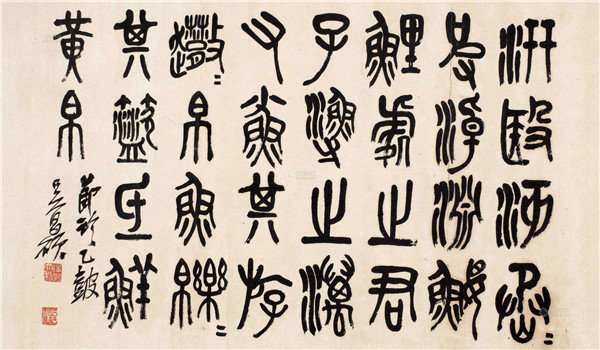 汧殹沔烝
彼淖淵鰋
鯉處之君
子漁之澫
又小魚其斿
帛魚皪〻
其盜氐鮮
黃帛
節臨乙鼓
吳昌碩